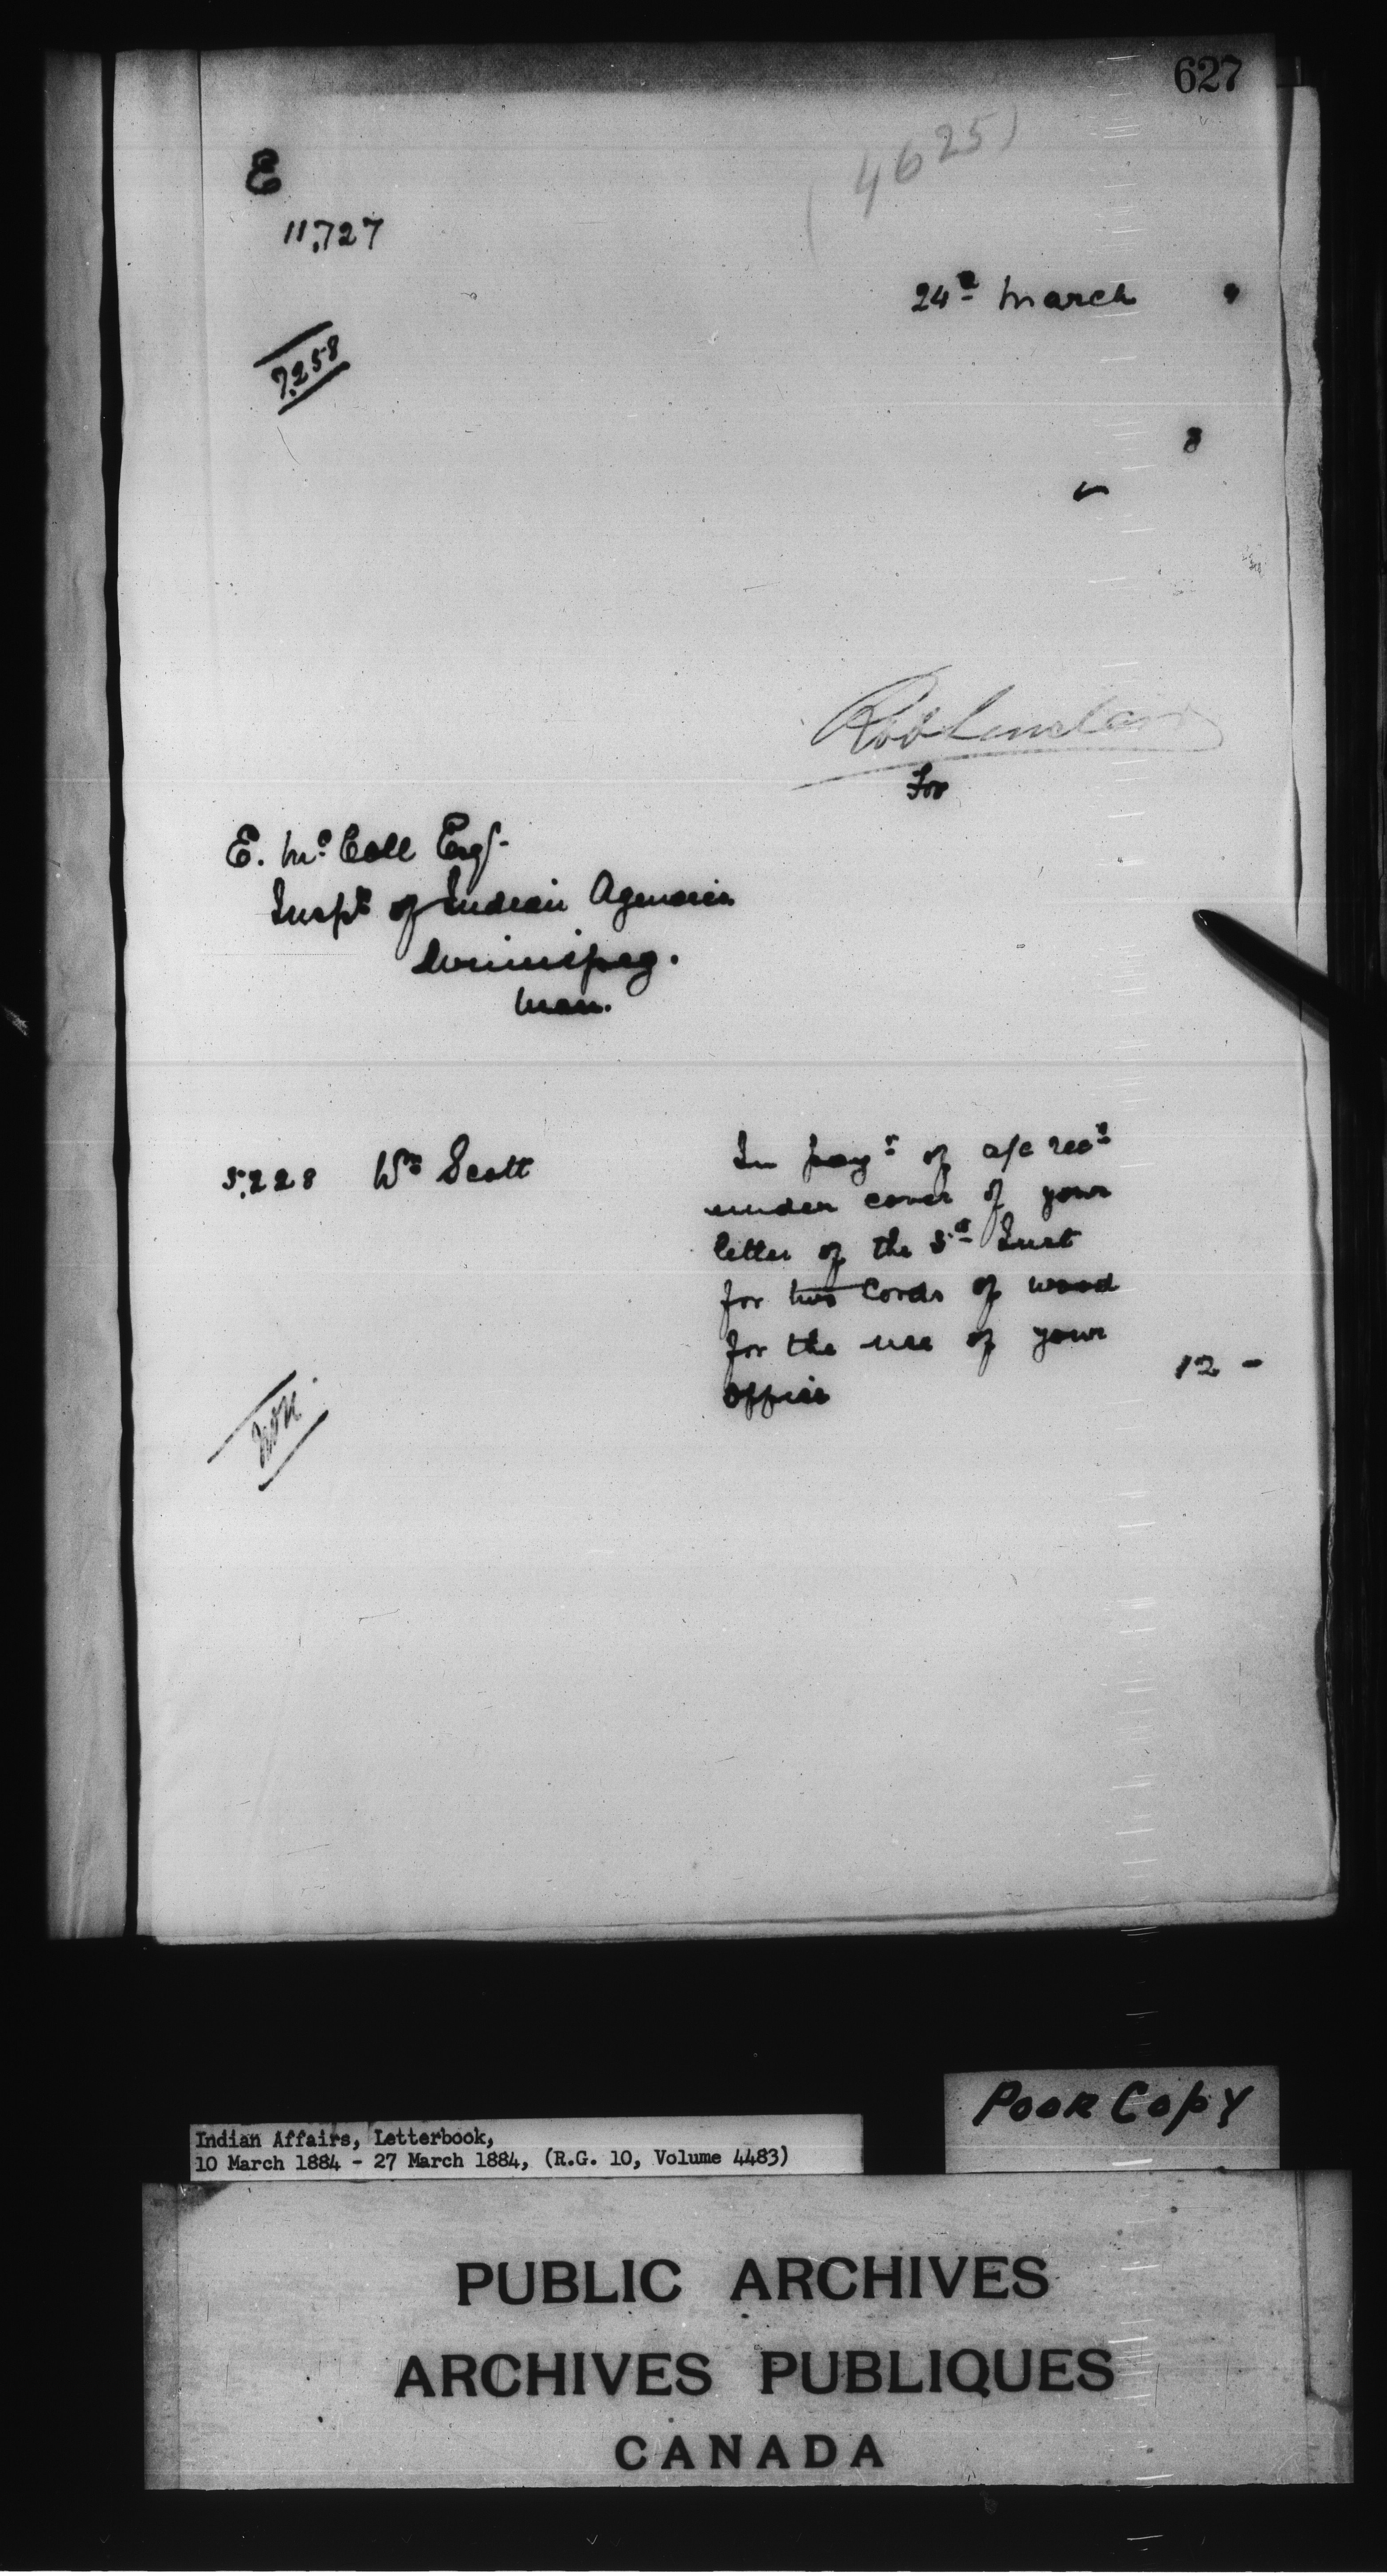 627
(4625)
E
11,727
24th March
7,258
8
Rob Sinclair
For
E. McColl Esqr.
Inspr of Indian Agencies
Winnipeg.
Man.
5,228 Wm Scott
In payt of a/c recd
under cover of your
letter of the 5th Inst
for two Cords of wood
for the use of your
office
12 -
Poor Copy
Indian Affairs, Letterbook,
10 March 1884 - 27 March 1884, (R.G. 10, Volume 4483)
PUBLIC ARCHIVES
ARCHIVES PUBLIQUES
CANADA